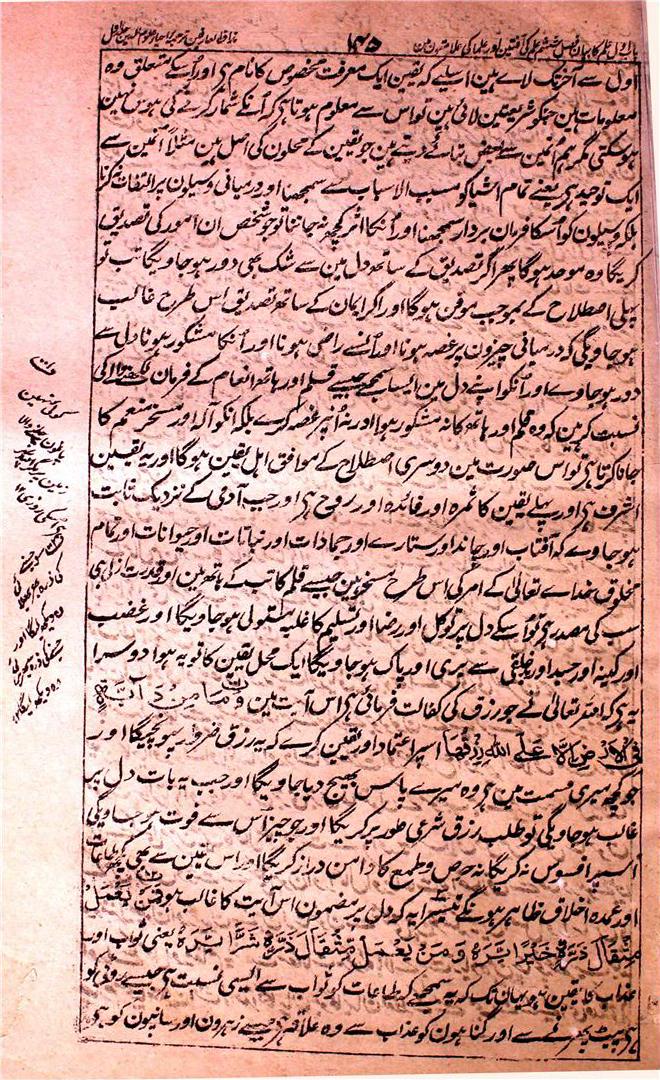 باب اول علم کا بیان فصل ششم علم کی آفتین اور علما کی علامتون مین
۱۴۵
مذاق العارفین ترجمہ احیاء علوم الدین جلد اول
اول سے آخر تک لائے ہین اسلیے کہ یقین ایک معرفت مخصوص کا نام ہی اور اُسکے متعلق وہ
معلومات ہین جنکو شریعتین لائی ہین تو اس سے معلوم ہوتا ہی کہ اُنکے شمار کرنے کی ہوس نہین
ہوسکتی مگر ہم اُنمین سے بعض بتائے دیتے ہین جو یقین کے محلون کی اصل ہین مثلاً اُنمین سے
ایک توحید ہی یعنے تمام اشیا کو مسبب الاسباب سے سمجھنا اور درمیانی وسیلون پر التفات نہ کرنا
بلکہ وسیلون کو اُسکا فرمان بردار سمجھنا اور اُنکا اثر کچھ نہ جاننا تو جو شخص ان امور کی تصدیق
کریگا وہ موحد ہوگا پھر اگر تصدیق کے ساتھ دل مین سے شک بھی دور ہو جاویگا تب تو
پہلی اصطلاح کے بموجب موقن ہوگا اور اگر ایمان کے ساتھ تصدیق اس طرح غالب
ہو جاویگی کہ درمیانی چیزون پر غصہ ہونا اور اُنسے راضی ہونا اور اُنکا مشکور ہونا دل سے
دور ہو جاوے اور اُنکو اپنے دل مین ایسا سمجھے جیسے قلم اور ہاتھ انعام کے فرمان لکھنے والے کی
نسبت کر ہین کہ وہ قلم اور ہاتھ کا نہ مشکور ہوا اور نہ اُنپر غصہ کرے بلکہ انکو آلہ اور مسخر منعم کا
جانا کرتا ہی تو اس صورت مین دوسری اصطلاح کے موافق اہل یقین ہوگا اور یہ یقین
اشرف ہی اور پہلے یقین کا ثمرہ اور فائدہ اور روح ہی اور جب آدمی کے نزدیک ثابت
ہو جاوے کہ آفتاب اور چاند اور ستارے اور جمادات اور نباتات اور حیوانات اور تمام
مخلوق خداے تعالیٰ کے امر کی اس طرح مسخر ہین جیسے قلم کاتب کے ہاتھ مین اور قدرت ازلی ہی
سب کی مصدر ہی تو اُسکے دل پر توکل اور رضا اور تسلیم کا غلبہ مستولی ہو جاویگا اور غضب
اور کینہ اور حسد اور بدخلقی سے بری اور پاک ہو جاویگا ایک محل یقین کا تو یہ ہوا دوسرا
یہ ہی کہ اللہ تعالیٰ نے جو رزق کی کفالت فرمائی ہی اس آیت مین وَمَا مِنْ دَآبَّةٍ
فِی الْاَرْضِ اِلَّا عَلَی اللّٰهِ رِزْقُهَا اسپر اعتماد اور یقین کرے کہ یہ رزق ضرور پہونچیگا اور
جو کچھ میری قسمت مین ہی وہ میرے پاس بھیج دیا جاویگا اور جب یہ بات دل پر
غالب ہو جاویگی تو طلب رزق شرعی طور پر کریگا اور جو چیز اُس سے فوت ہو جاویگی
اُسپر افسوس نہ کریگا نہ حرص و طمع کا دامن دراز کریگا اور اس یقین سے بھی کچھ طاعات
اور عمدہ اخلاق ظاہر ہونگے تیسرا یہ کہ دل پر مضمون اس آیت کا غالب ہو فَمَنْ یَعْمَلْ
مِثْقَالَ ذَرَّةٍ خَیْرًا یَرَهُ وَمَنْ یَعْمَلْ مِثْقَالَ ذَرَّةٍ شَرًّا یَرَهُ یعنی ثواب اور
عذاب کا یقین ہو یہان تک کہ یہ سمجھے کہ طاعات کو ثواب سے ایسی نسبت ہی جیسے روٹی کو
ہی پیٹ بھرنے سے اور گناہون کو عذاب سے وہ علاقہ ہی جیسے زہرون اور سانپون کو ہی
اور
نہین
پاون چلنے والا
زمین پر
روزی ۱۲
سو جسنے کی
ذرہ بھر بھلائی
وہ دیکھ لیگا اور
جسنے کی ذرہ بھر برائی
وہ دیکھ لیگا ۱۲